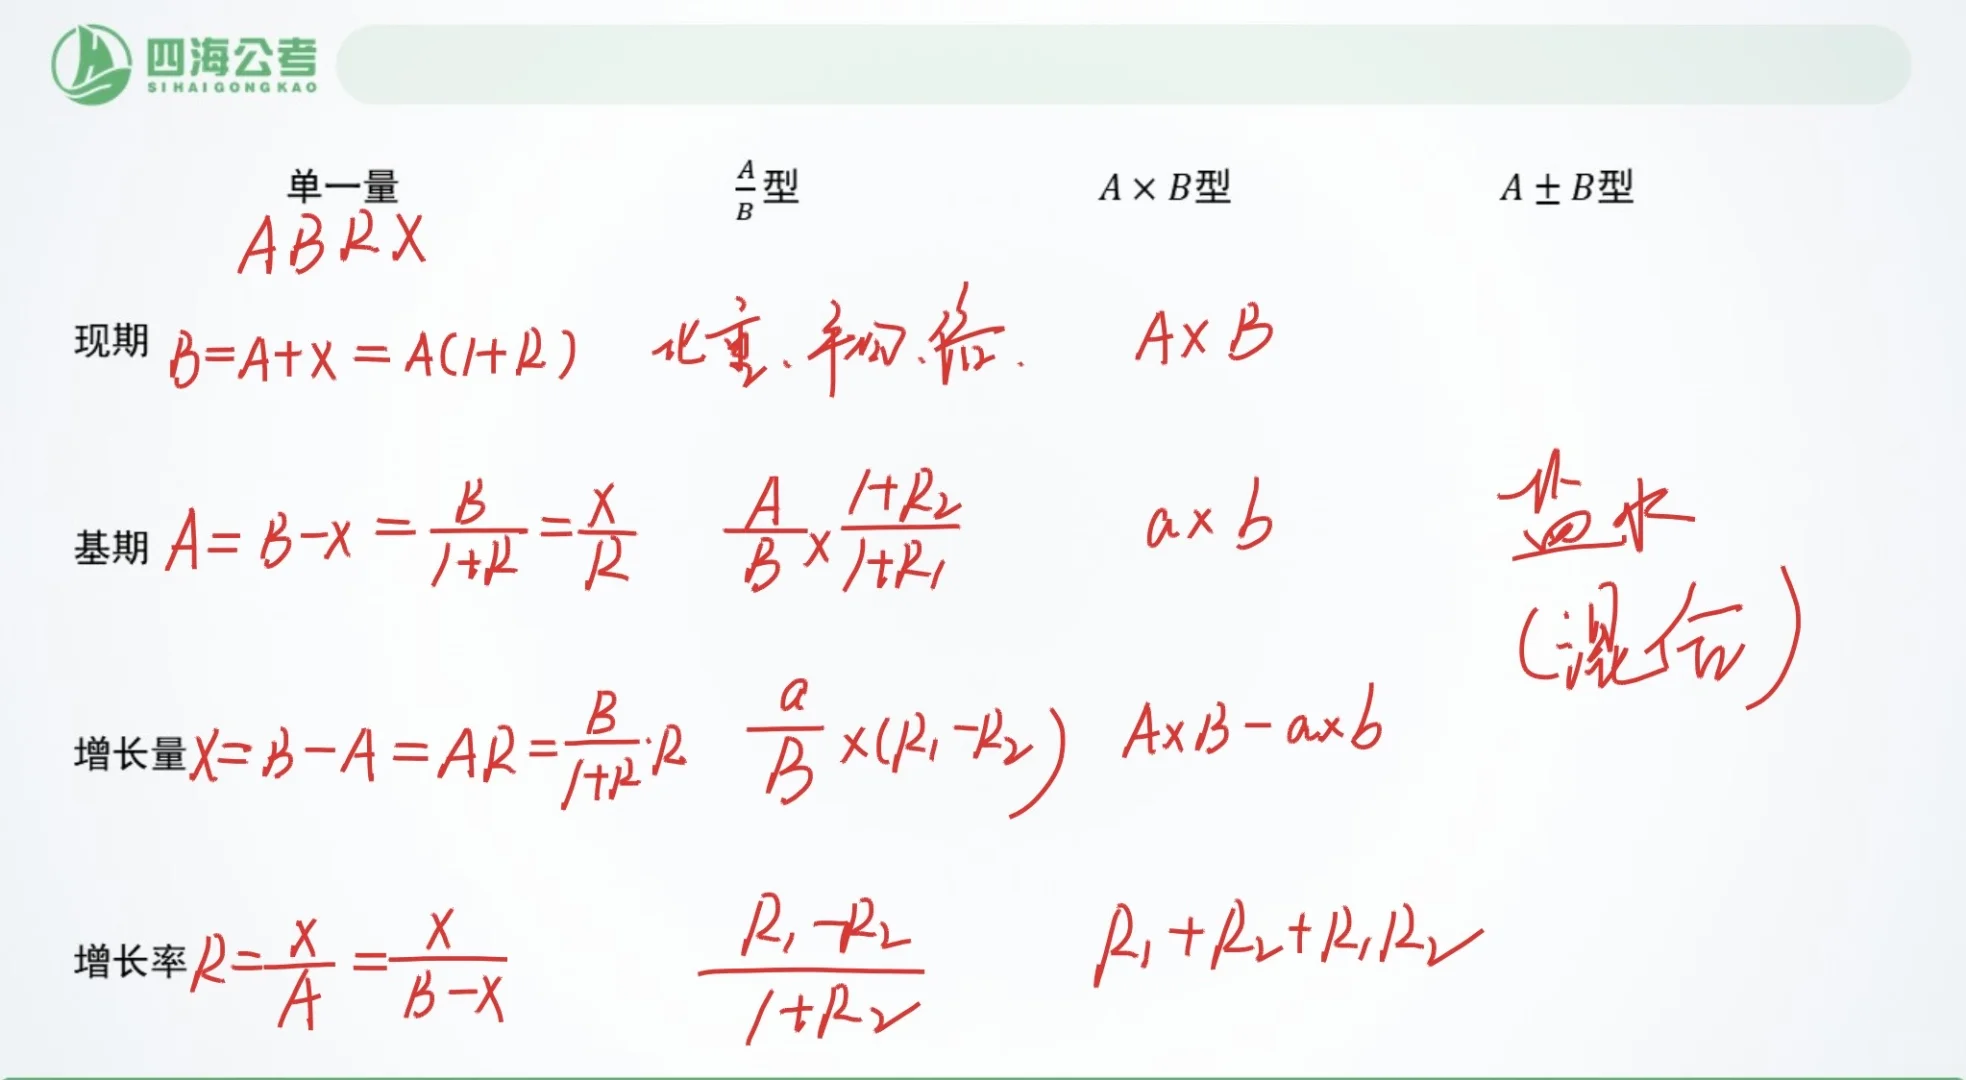 四海公考
SIHAIGONGKAO
单一量 A/B型 A × B型 A ± B型
A B R X
现期 B=A+X=A(1+R) 比重、平均、倍. A×B
基期 A=B-X=B/(1+R)=X/R A/B×(1+R₂)/(1+R₁) a×b 盐水
(混合)
增长量 X=B-A=AR=B/(1+R)·R a/B×(R₁-R₂) A×B-a×b
增长率 R=X/A=X/(B-X) (R₁-R₂)/(1+R₂) R₁+R₂+R₁R₂